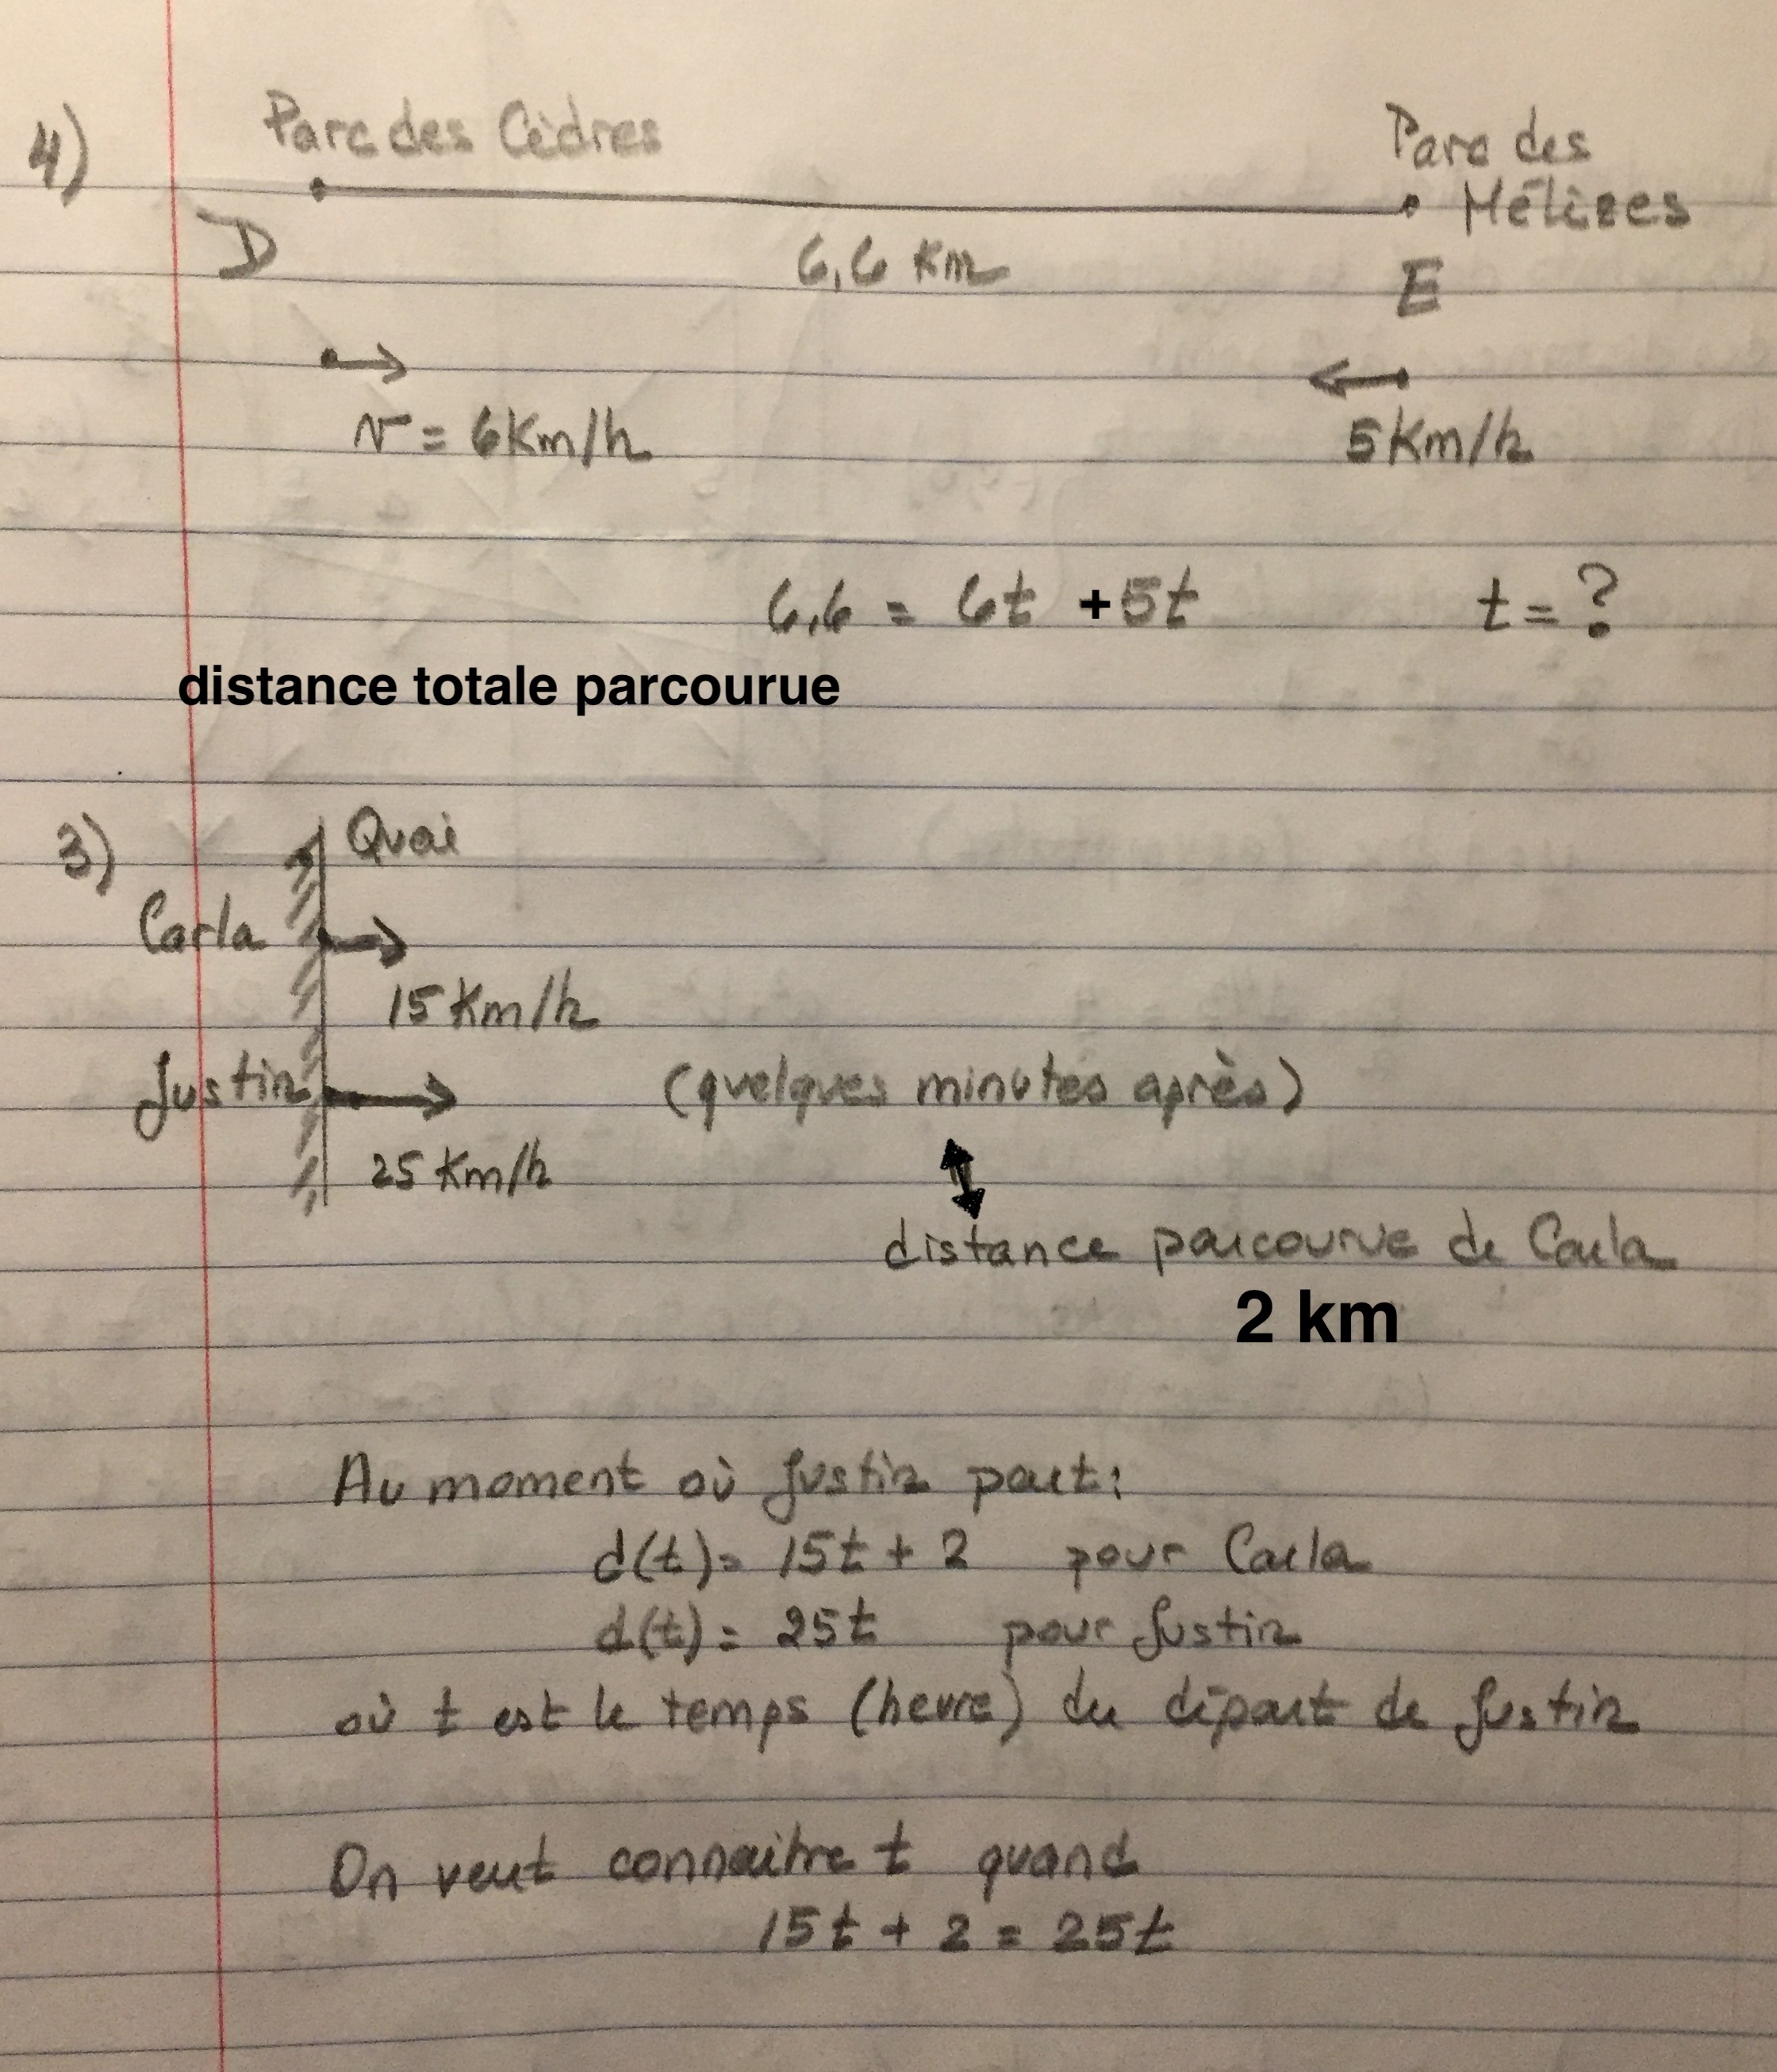 4)
Parc des Cèdres
Parc des
Mélèzes
D
6,6 Km
E
v = 6Km/h
5Km/h
6,6 = 6t +5t t = ?
distance totale parcourue
3)
Quai
Carla
15 Km/h
Justin (quelques minutes après)
25 Km/h
distance parcourue de Carla
2 km
Au moment où Justin part:
d(t) = 15t + 2 pour Carla
d(t) = 25t pour Justin
où t est le temps (heure) du départ de Justin
On veut connaitre t quand
15t + 2 = 25t